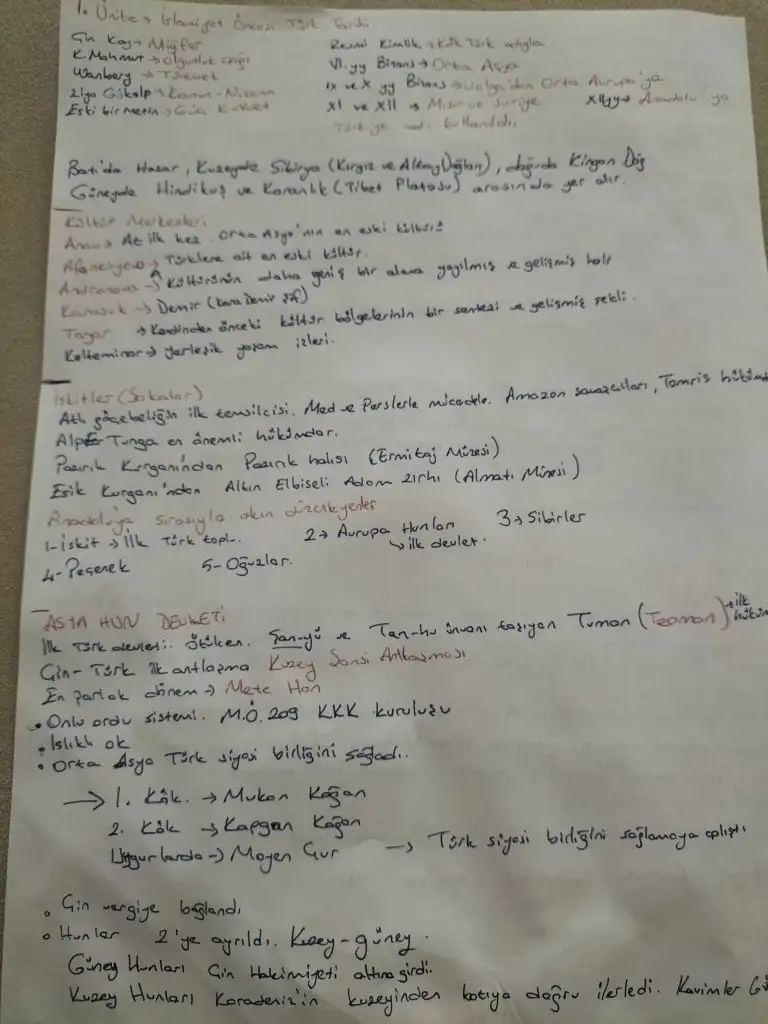 1. Ünite → İslamiyet Öncesi Türk Tarihi
Çin Kay → Miğfer
K. Mahmut → Olgunluk çağı
Wambery → Türemek
Ziya Gökalp → Kanun-Nizam
Eski bir metin → Güç Kuvvet
Resmi Kimlik → Kök Türk adıyla
VI. yy Bizans → Orta Asya
IX ve X yy Bizans → Volga'dan Orta Avrupa'ya
XI ve XII → Mısır ve Suriye XII yy → Anadolu'ya
Türkiye adı kullanıldı.
Batı'da Hazar, Kuzeyde Sibirya (Kırgız ve Altay Dağları), doğuda Kingan Dağ
Güneyde Hindikuş ve Karanlık (Tibet Platosu) arasında yer alır.
Kültür Merkezleri
Anav → At ilk kez. Orta Asya'nın en eski kültürü
Afanesyevo → Türklere ait en eski kültür.
Andronova → A kültürünün daha geniş bir alana yayılmış ve gelişmiş hali
Karasuk → Demir (Kara Demir)
Tagar → Kendinden önceki kültür bölgelerinin bir sentezi ve gelişmiş şekli.
Kelteminar → yerleşik yaşam izleri.
İskitler (Sakalar)
Atlı göçebeliğin ilk temsilcisi. Med ve Perslerle mücadele. Amazon savaşçıları, Tomris hükümd
Alp Er Tunga en önemli hükümdar.
Pazırık Kurganından Pazırık halısı (Ermitaj Müzesi)
Esik Kurganı'ndan Altın Elbiseli Adam zırhı (Almatı Müzesi)
Anadolu'ya sırasıyla akın düzenleyenler
1-İskit → İlk Türk topl. 2 → Avrupa Hunları 3 → Sibirler
↳ ilk devlet.
4-Peçenek 5-Oğuzlar.
ASYA HUN DEVLETİ
İlk Türk devleti. Ötüken. Şan-yü ve Tan-hu ünvanı taşıyan Tuman (Teoman) → ilk hüküm
Çin-Türk ilk antlaşma Kuzey Şansi Antlaşması
En parlak dönem → Mete Han
• Onlu ordu sistemi. M.Ö. 209 KKK kuruluşu
• Islıklı ok
• Orta Asya Türk siyasi birliğini sağladı.
→ 1. Kök. → Mukan Kağan
2. Kök → Kapgan Kağan
Uygurlarda → Moyen Çur → Türk siyasi birliğini sağlamaya çalıştı
• Çin vergiye bağlandı
• Hunlar 2'ye ayrıldı. Kuzey-güney.
Güney Hunları Çin Hakimiyeti altına girdi.
Kuzey Hunları Karadeniz'in kuzeyinden batıya doğru ilerledi. Kavimler Gö